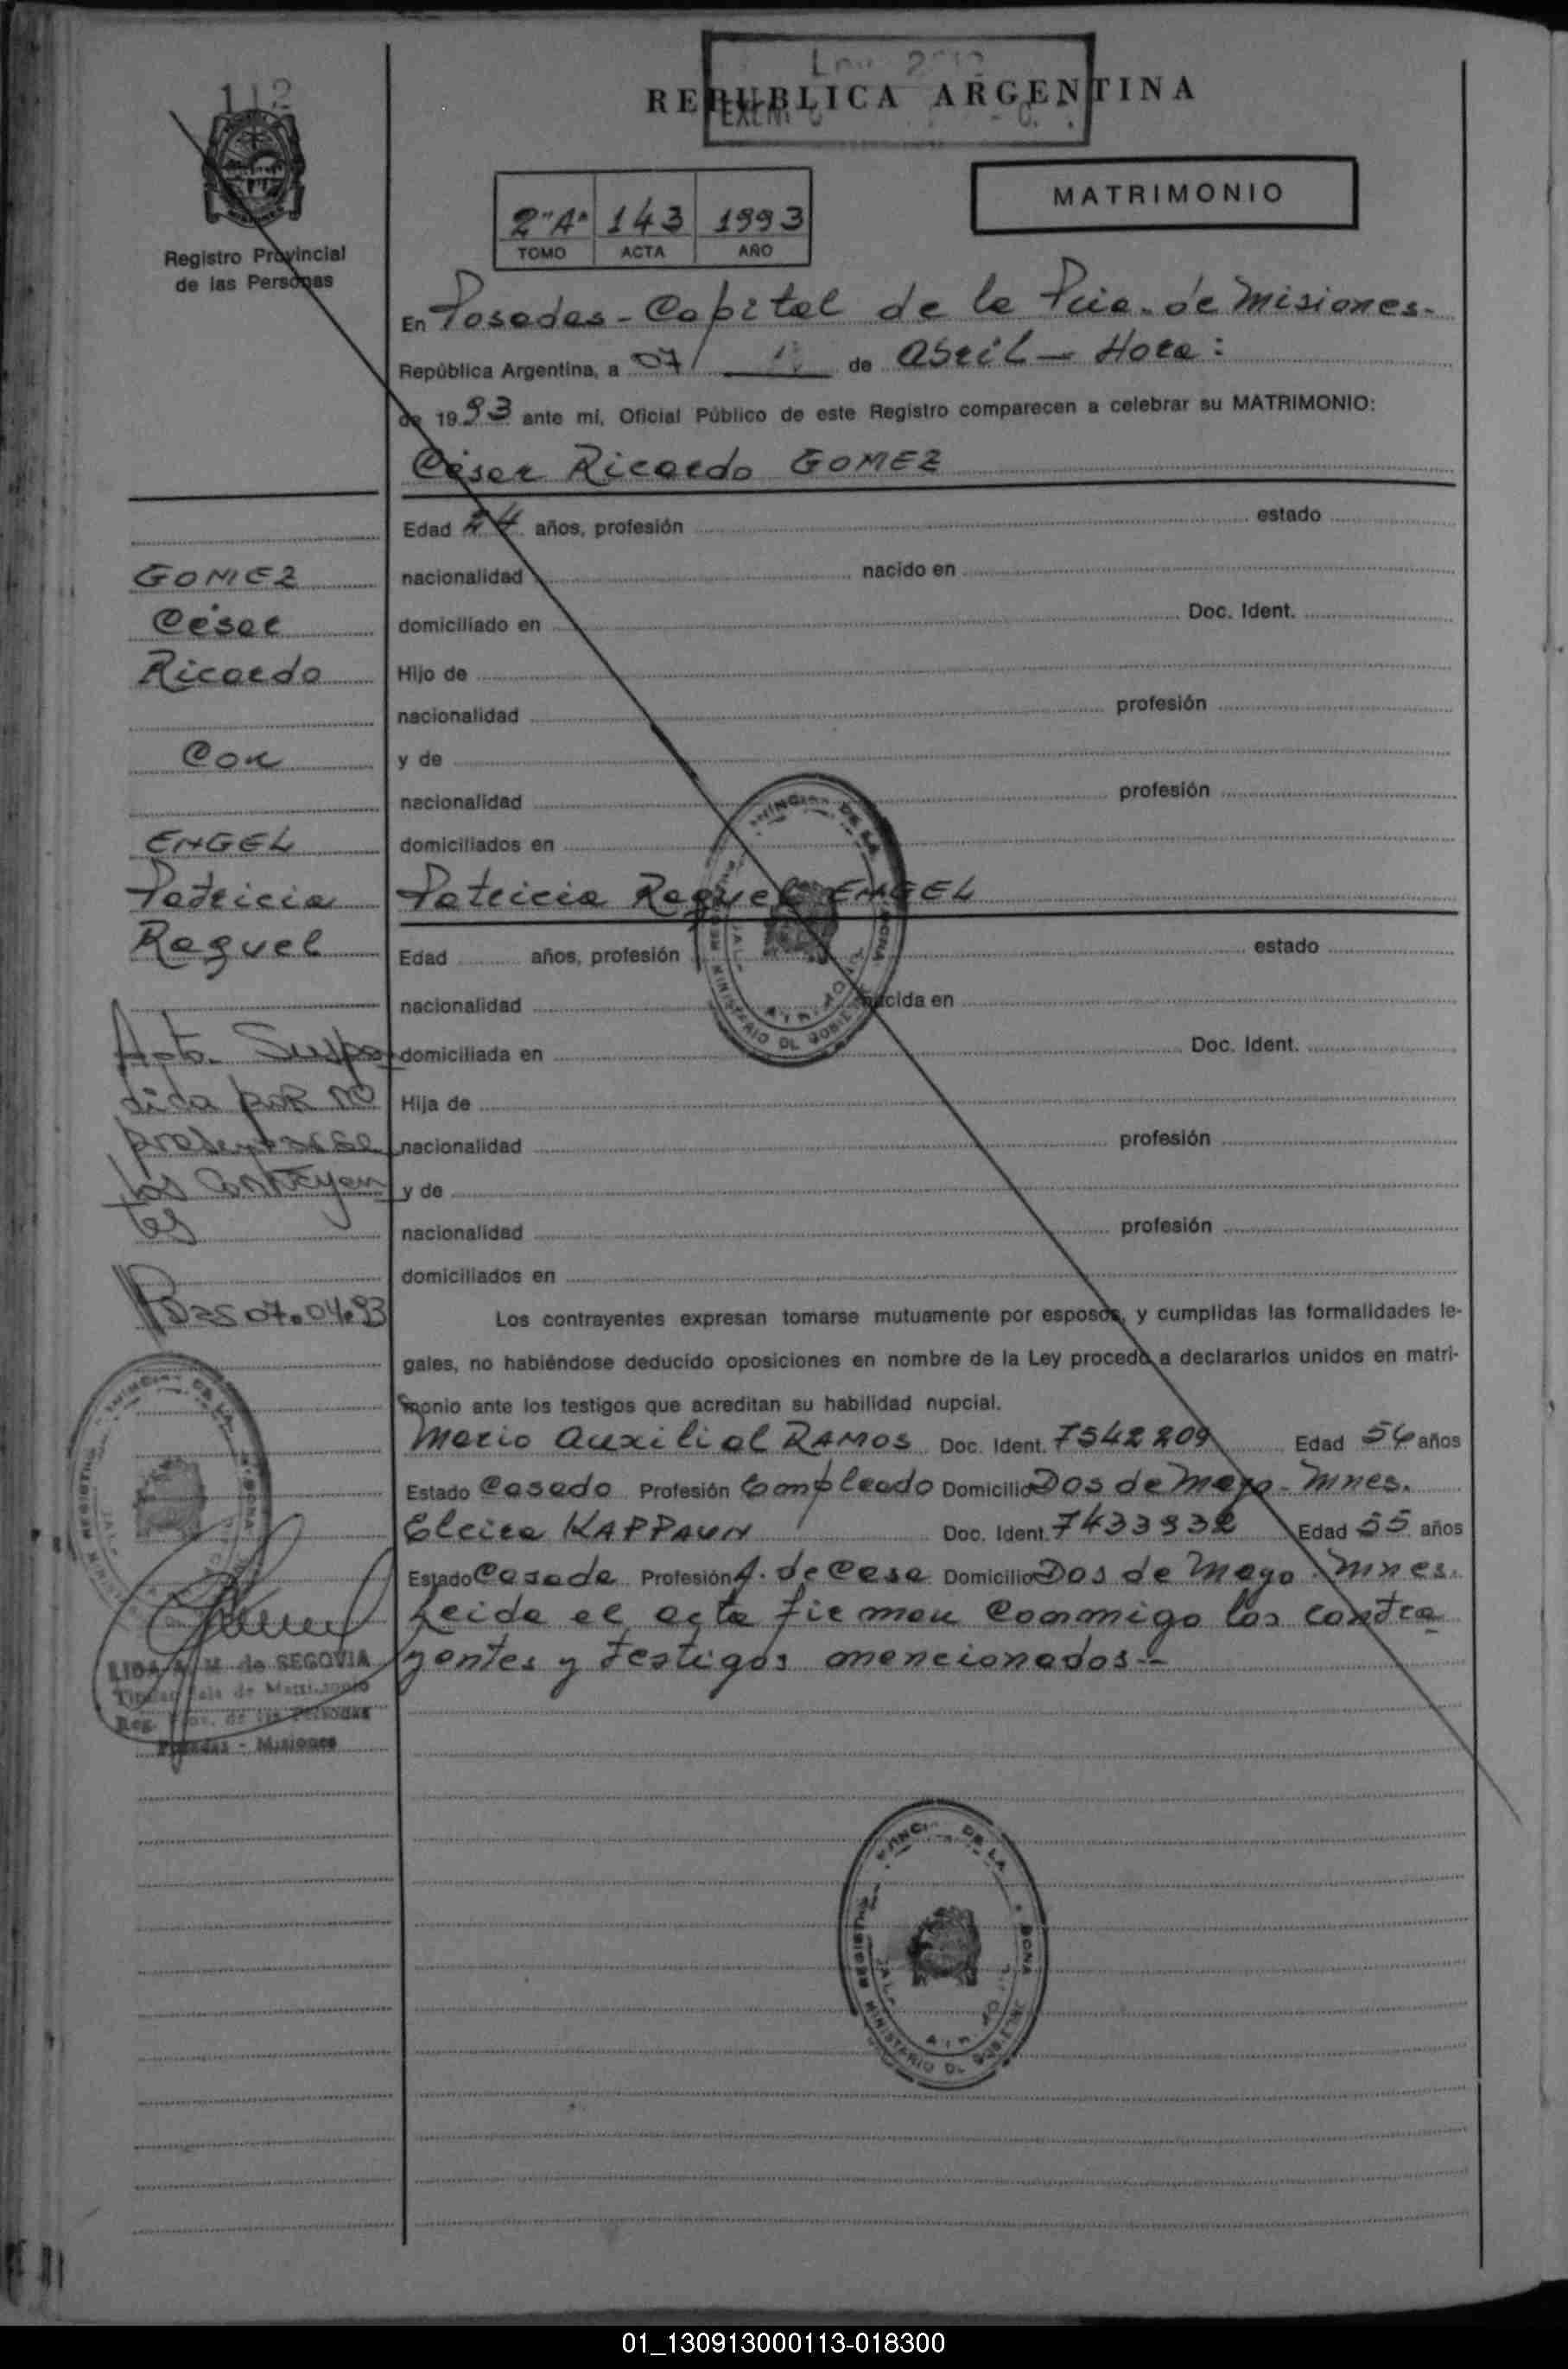 112
REPUBLICA ARGENTINA
MATRIMONIO
2"A" 143 1993
TOMO ACTA AÑO
Registro Provincial
de las Personas
En Posadas - Capital de la Pcia. de Misiones.
República Argentina, a 07 de Abril - Hora:
de 1993 ante mi, Oficial Público de este Registro comparecen a celebrar su MATRIMONIO:
César Ricardo GOMEZ
Edad 24 años, profesión estado
nacionalidad nacido en
domiciliado en Doc. Ident.
Hijo de
nacionalidad profesión
y de
nacionalidad profesión
domiciliados en
Patricia Raquel ENGEL
Edad años, profesión estado
nacionalidad nacida en
domiciliada en Doc. Ident.
Hija de
nacionalidad profesión
y de
nacionalidad profesión
domiciliados en
Los contrayentes expresan tomarse mutuamente por esposos, y cumplidas las formalidades le-
gales, no habiéndose deducido oposiciones en nombre de la Ley procedo a declararlos unidos en matri-
monio ante los testigos que acreditan su habilidad nupcial.
Mario Auxilial RAMOS Doc. Ident. 7542209 Edad 54 años
Estado Casado Profesión Empleado Domicilio Dos de Mayo - Mnes.
Elcira KAPPAUN Doc. Ident. 7433932 Edad 55 años
Estado Casada Profesión A. de Casa Domicilio Dos de Mayo - Mnes.
Leida el acta firman conmigo los contra
yentes y testigos mencionados.-
GOMEZ
César
Ricardo
con
ENGEL
Patricia
Raquel
Acta. Suspen
dida por no
presentarse
los contrayen
tes
Pdas 07.04.93
LIDA A. M. de SEGOVIA
Titular Sala de Matrimonio
Reg. Prov. de las Personas
Posadas - Misiones
01_130913000113-018300